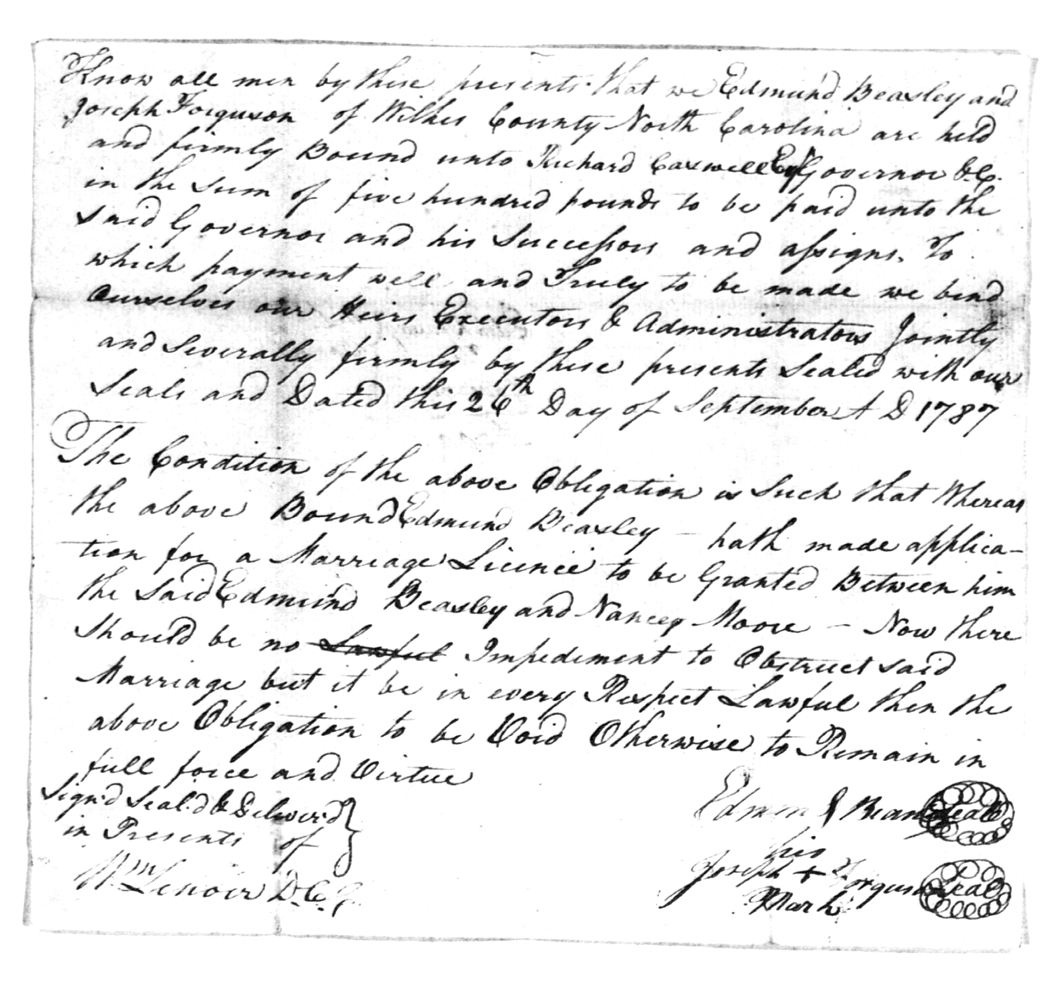 Know all men by these presents that we Edmund Beasley and
Joseph Forguson of Wilkes County North Carolina are held
and firmly Bound unto Richard Caswell Esqr Governor &.C.
in the Sum of five hundred pounds to be paid unto the
said Governor and his Successors and assigns. To
which payment well and Truly to be made we bind
Ourselves our Heirs Executors & Administrators Jointly
and Severally firmly by these presents Sealed with our
Seals and Dated this 26th Day of September A D 1787
The Condition of the above Obligation is Such that Whereas
the above Bound Edmund Beasley – hath made applica-
tion for a Marriage Licence to be Granted Between him
the Said Edmund Beasley and Nancey Moore – Now there
Should be no Lawful Impediment to Obstruct said
Marriage but it be in every Respect Lawful then the
above Obligation to be Void Otherwise to Remain in
full force and Virtue
Sign'd Seal'd & Deliver'd
in Presents of
Wm Lenoir D.C.
Edmund Seal
his
Joseph + Forguson Seal
Mark